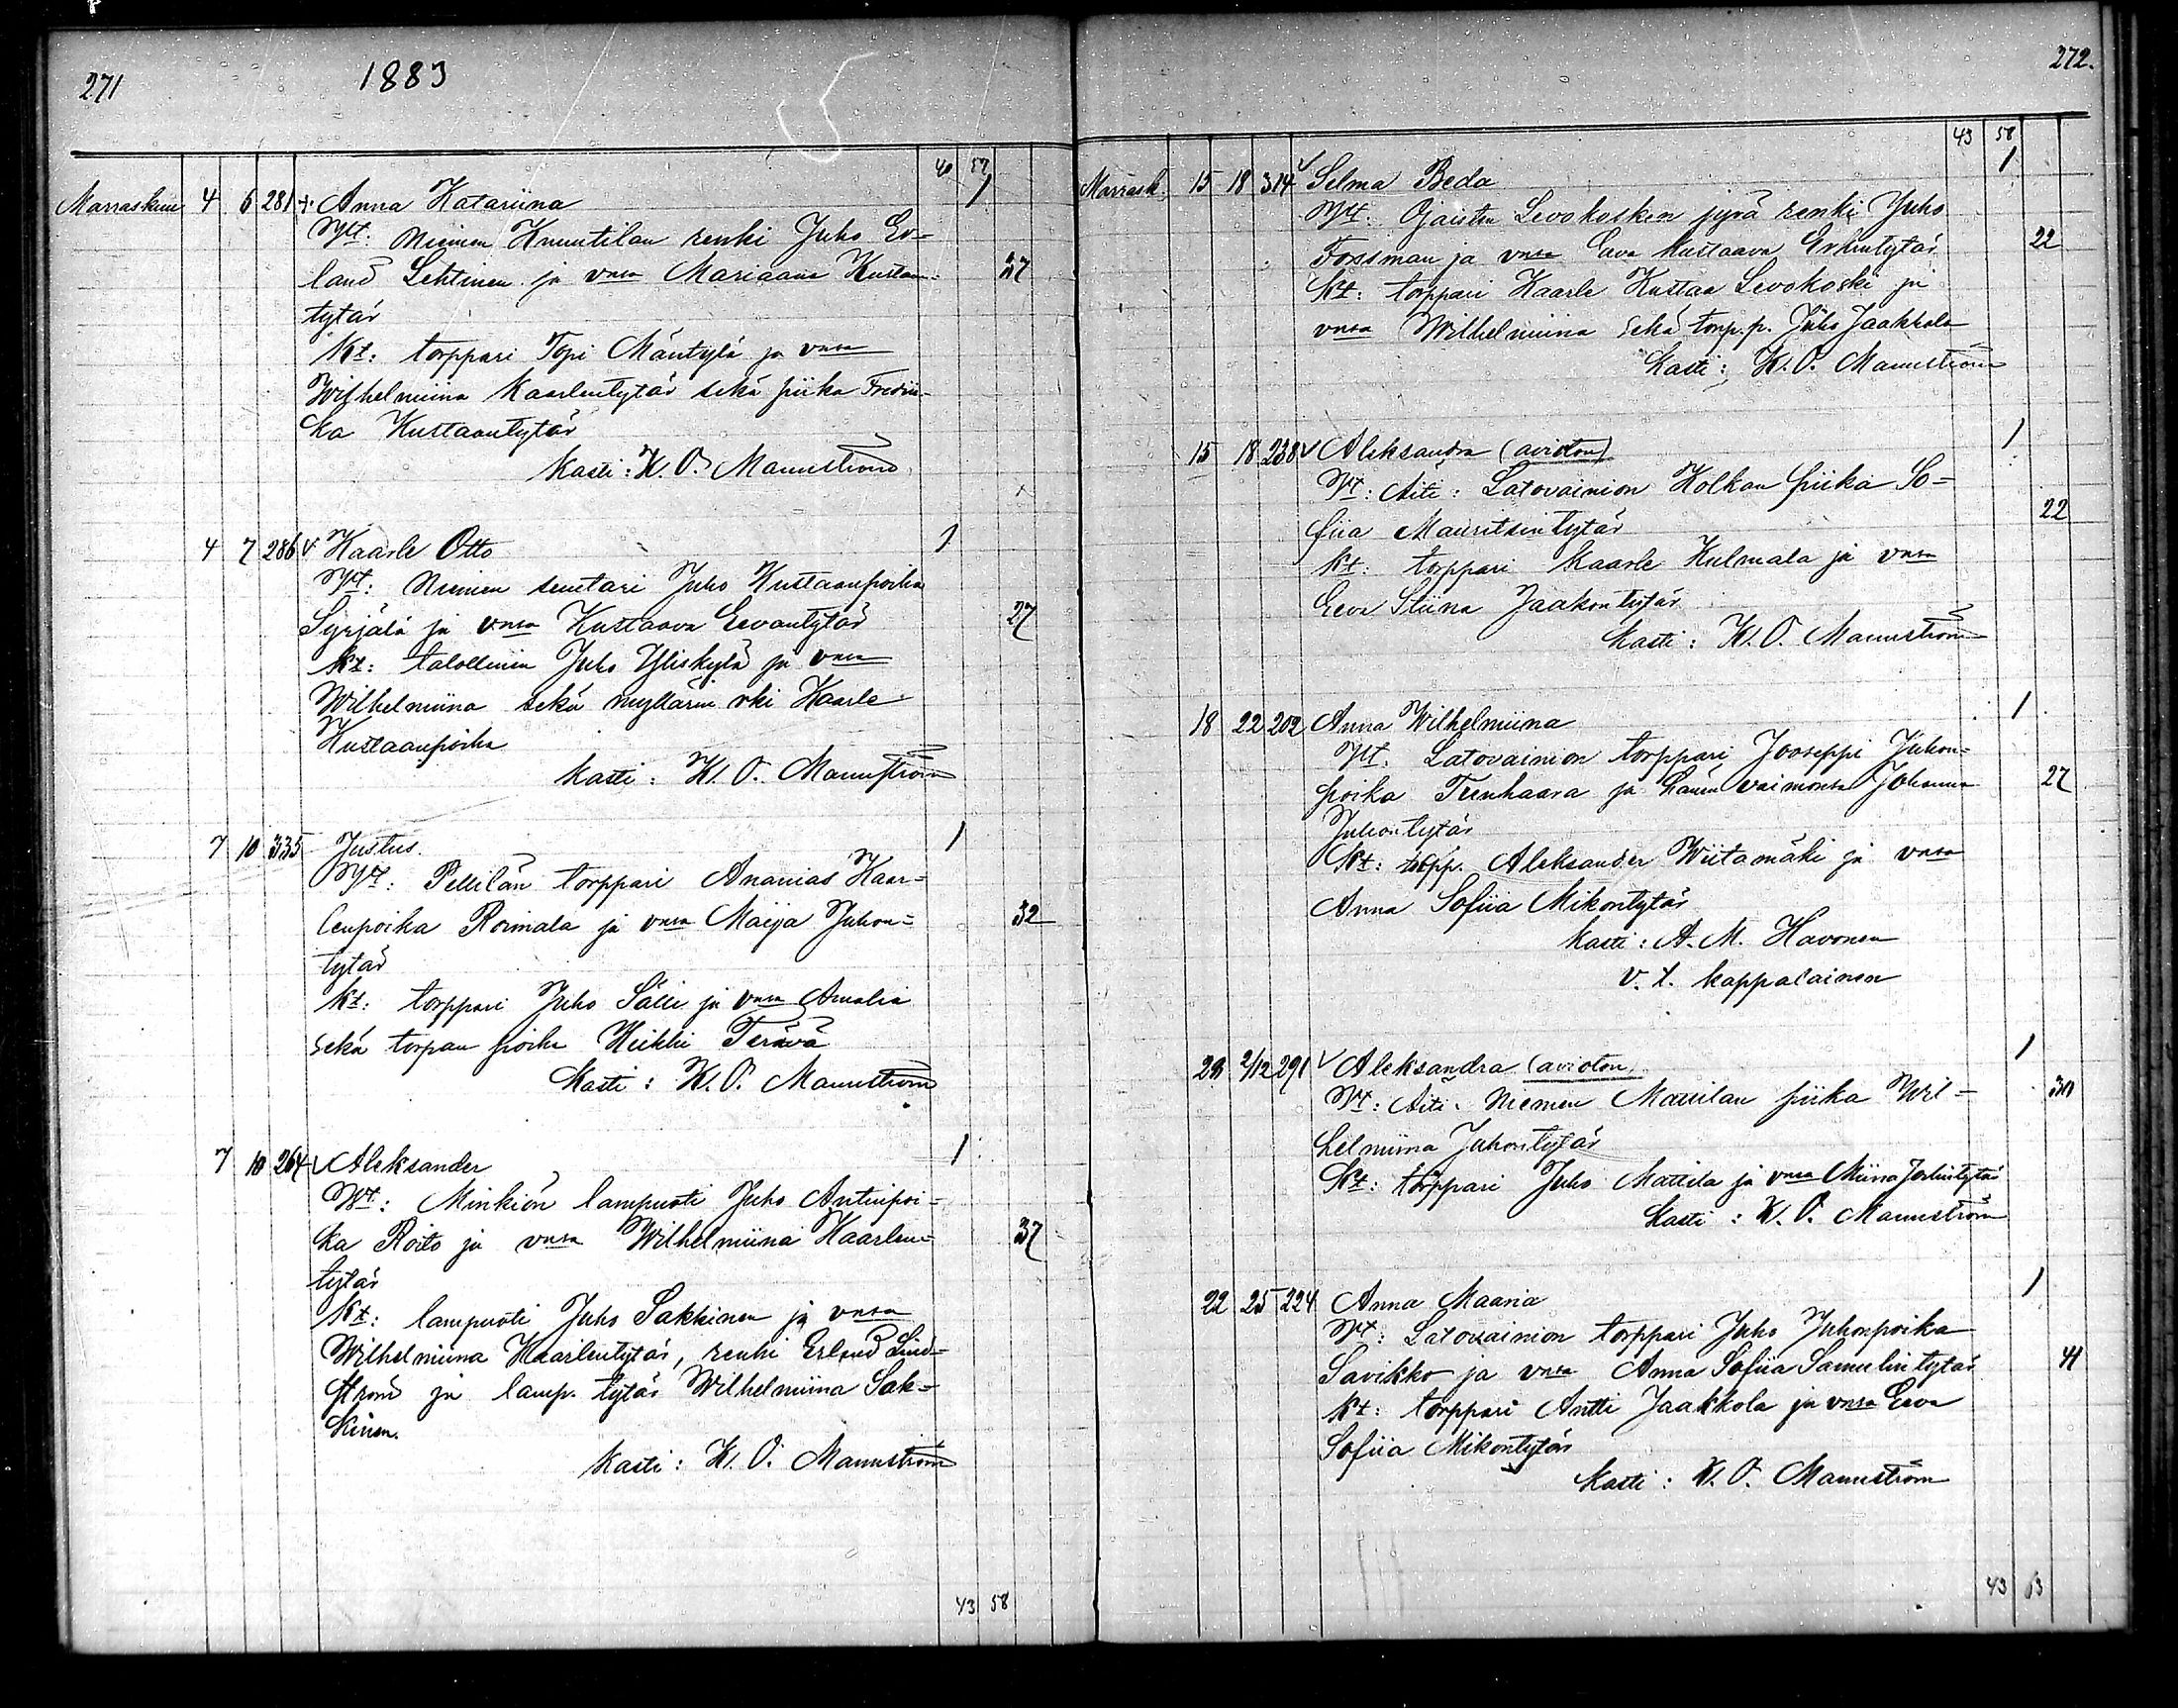 271
1883
40 57
Marraskuu 4 6 281 + Anna Katariina 1
Wt: Niemen Knuutilan renki Juho Er-
land Lehtinen ja vnsa Mariaana Kustaan- 37
tytär
Kt: torppari Topi Mäntylä ja vnsa
Wilhelmiina Kaarlentytär sekä piika Fredrii-
ka Kustaantytär
Kasti: K. O. Mannström
4 7 286 v Kaarle Otto 1
Wt: Niemen suutari Juho Kustaanpoika
Syrjälä ja vnsa Kustaava Eevantytär 27
Kt: talollinen Juho Yliskylä ja vnsa
Wilhelmiina sekä myllärin rki Kaarle
Kustaanpoika
Kasti: K. O. Mannström
7 10 335 Justus. 1
Wt: Pellilän torppari Ananias Kaar-
lenpoika Roimala ja vnsa Maija Juhon- 32
tytär
Kt: torppari Juho Sälli ja vnsa Amalia
sekä torpan poika Heikki Terävä
Kasti: K. O. Mannström
7 10 264 v Aleksander 1
Wt: Minkiön lampuoti Juho Antinpoi-
ka Roito ja vnsa Wilhelmiina Kaarlen- 37
tytär
Kt: lampuoti Juho Sakkinen ja vnsa
Wilhelmiina Kaarlentytär, renki Erland Lind-
ström ja lamp. tytär Wilhelmiina Sak-
kinen.
Kasti: K. O. Mannström
43 58
272.
43 58
Marrask. 15 18 314 v Selma Beda 1
Wt. Ojaisten Levokosken jyvä renki Juho
Forssman ja vnsa Eeva Kustaava Erkintytär 22
Kt: torppari Kaarle Kustaa Levokoski ja
vnsa Wilhelmiina sekä torp.p. Juho Jaakkola
Kasti: K. O. Mannström
15 18 238 v Aleksandra (avioton) 1
Wt: Äiti: Latovainion Kolkan piika So-
fiia Mauritsintytär 22
Kt: torppari Kaarle Kulmala ja vnsa
Eeva Stiina Jaakontytär
Kasti: K. O. Mannström
18 22 202 Anna Wilhelmiina 1
Wt. Latovainion torppari Jooseppi Juhon-
poika Teenhaara ja hänen vaimonsa Johanna 27
Juhontytär
Kt: torpp. Aleksander Wiitamäki ja vnsa
Anna Sofiia Mikontytär
Kasti: A. M. Havonen
v. t. kappalainen
28 2/12 291 v Aleksandra (avioton) 1
Wt: Äiti: Niemen Mattilan piika Wil- 30
helmiina Juhontytär
Kt: torppari Juho Mattila ja vnsa Miina
Kasti: K. O. Mannström
22 25 224 Anna Maaria 1
Wt: Latovainion torppari Juho Juhonpoika
Savikko ja vnsa Anna Sofiia Samulintytär 41
Kt: torppari Antti Jaakkola ja vnsa Eeva
Sofiia Mikontytär
Kasti: K. O. Mannström
43 63